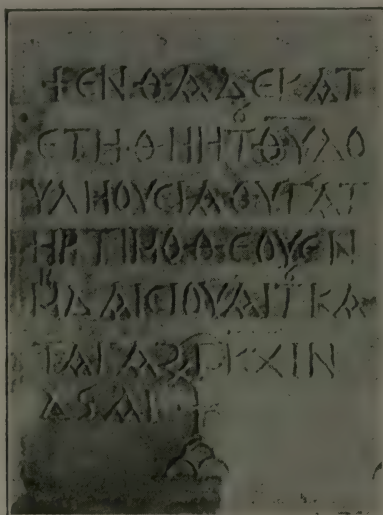 +ΕΝΘΑΔΕΚΑΤ
ΕΤΗΘΗΗΤȣΘΥΔΟ
ΥΛΗΟΥCΙΑΘΥΓΑΤ
ΗΡΤΙΜΟΘΕΟΥΕΝ
ΜΔΑΙCΙΟΥΑΙΤȣΚΑ
ΤΑΓΑΖ ΚΧΙΝ
ΔSΑΙ